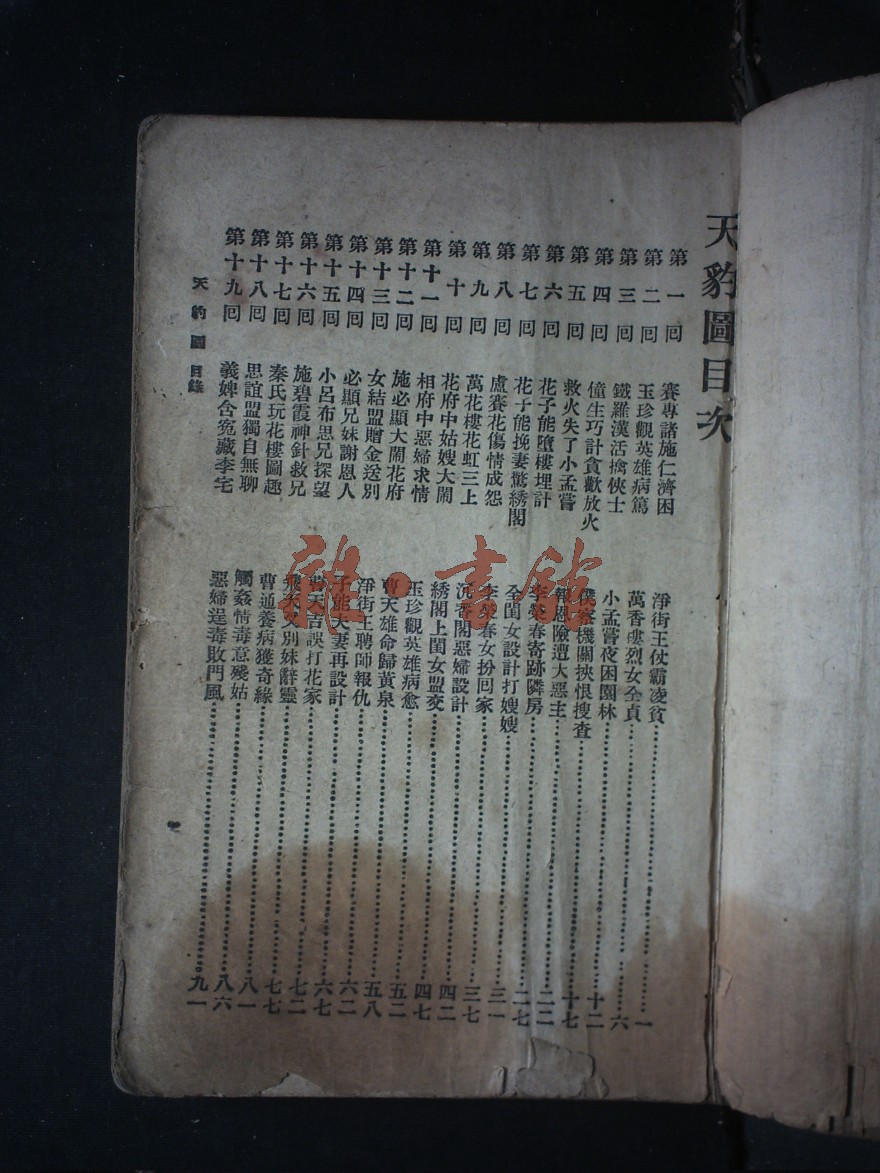 天豹圖目次
第一回 賽專諸施仁濟困 淨街王仗霸凌貧 一
第二回 玉珍觀英雄病篤 萬香樓烈女全貞 六
第三回 鐵羅漢活擒俠士 小孟嘗夜困園林 十二
第四回 僮生巧計貪歡放火 僕察機關挾恨搜查 十七
第五回 救火失了小孟嘗 報恩險遭大惡主 二二
第六回 花子能墮樓埋計 李榮春寄跡隣房 二七
第七回 花子能挽妻驚綉閣 全閨女設計打嫂嫂 三一
第八回 盧賽花傷情成怨 李榮春女扮回家 三七
第九回 萬花樓花虹三上 沉香閣惡婦設計 四二
第十回 花府中姑嫂大鬧 綉閣上閨女盟交 四七
第十一回 相府中惡婦求情 玉珍觀英雄病愈 五二
第十二回 施必顯大鬧花府 曹天雄命歸黃泉 五八
第十三回 女結盟贈金送別 淨街王聘師報仇 六二
第十四回 必顯兄妹謝恩人 子能夫妻再設計 六七
第十五回 小呂布思兄探望 曹天吉誤打花家 七二
第十六回 施碧霞神針救兄 飛天叉別妹辭靈 七七
第十七回 秦氏玩花樓圖趣 曹通養病獲奇緣 八一
第十八回 思誼盟獨自無聊 觸姦情毒意殘姑 八六
第十九回 義婢含冤藏李宅 惡婦逞毒敗門風 九一
天豹圖 目錄
雜·書館